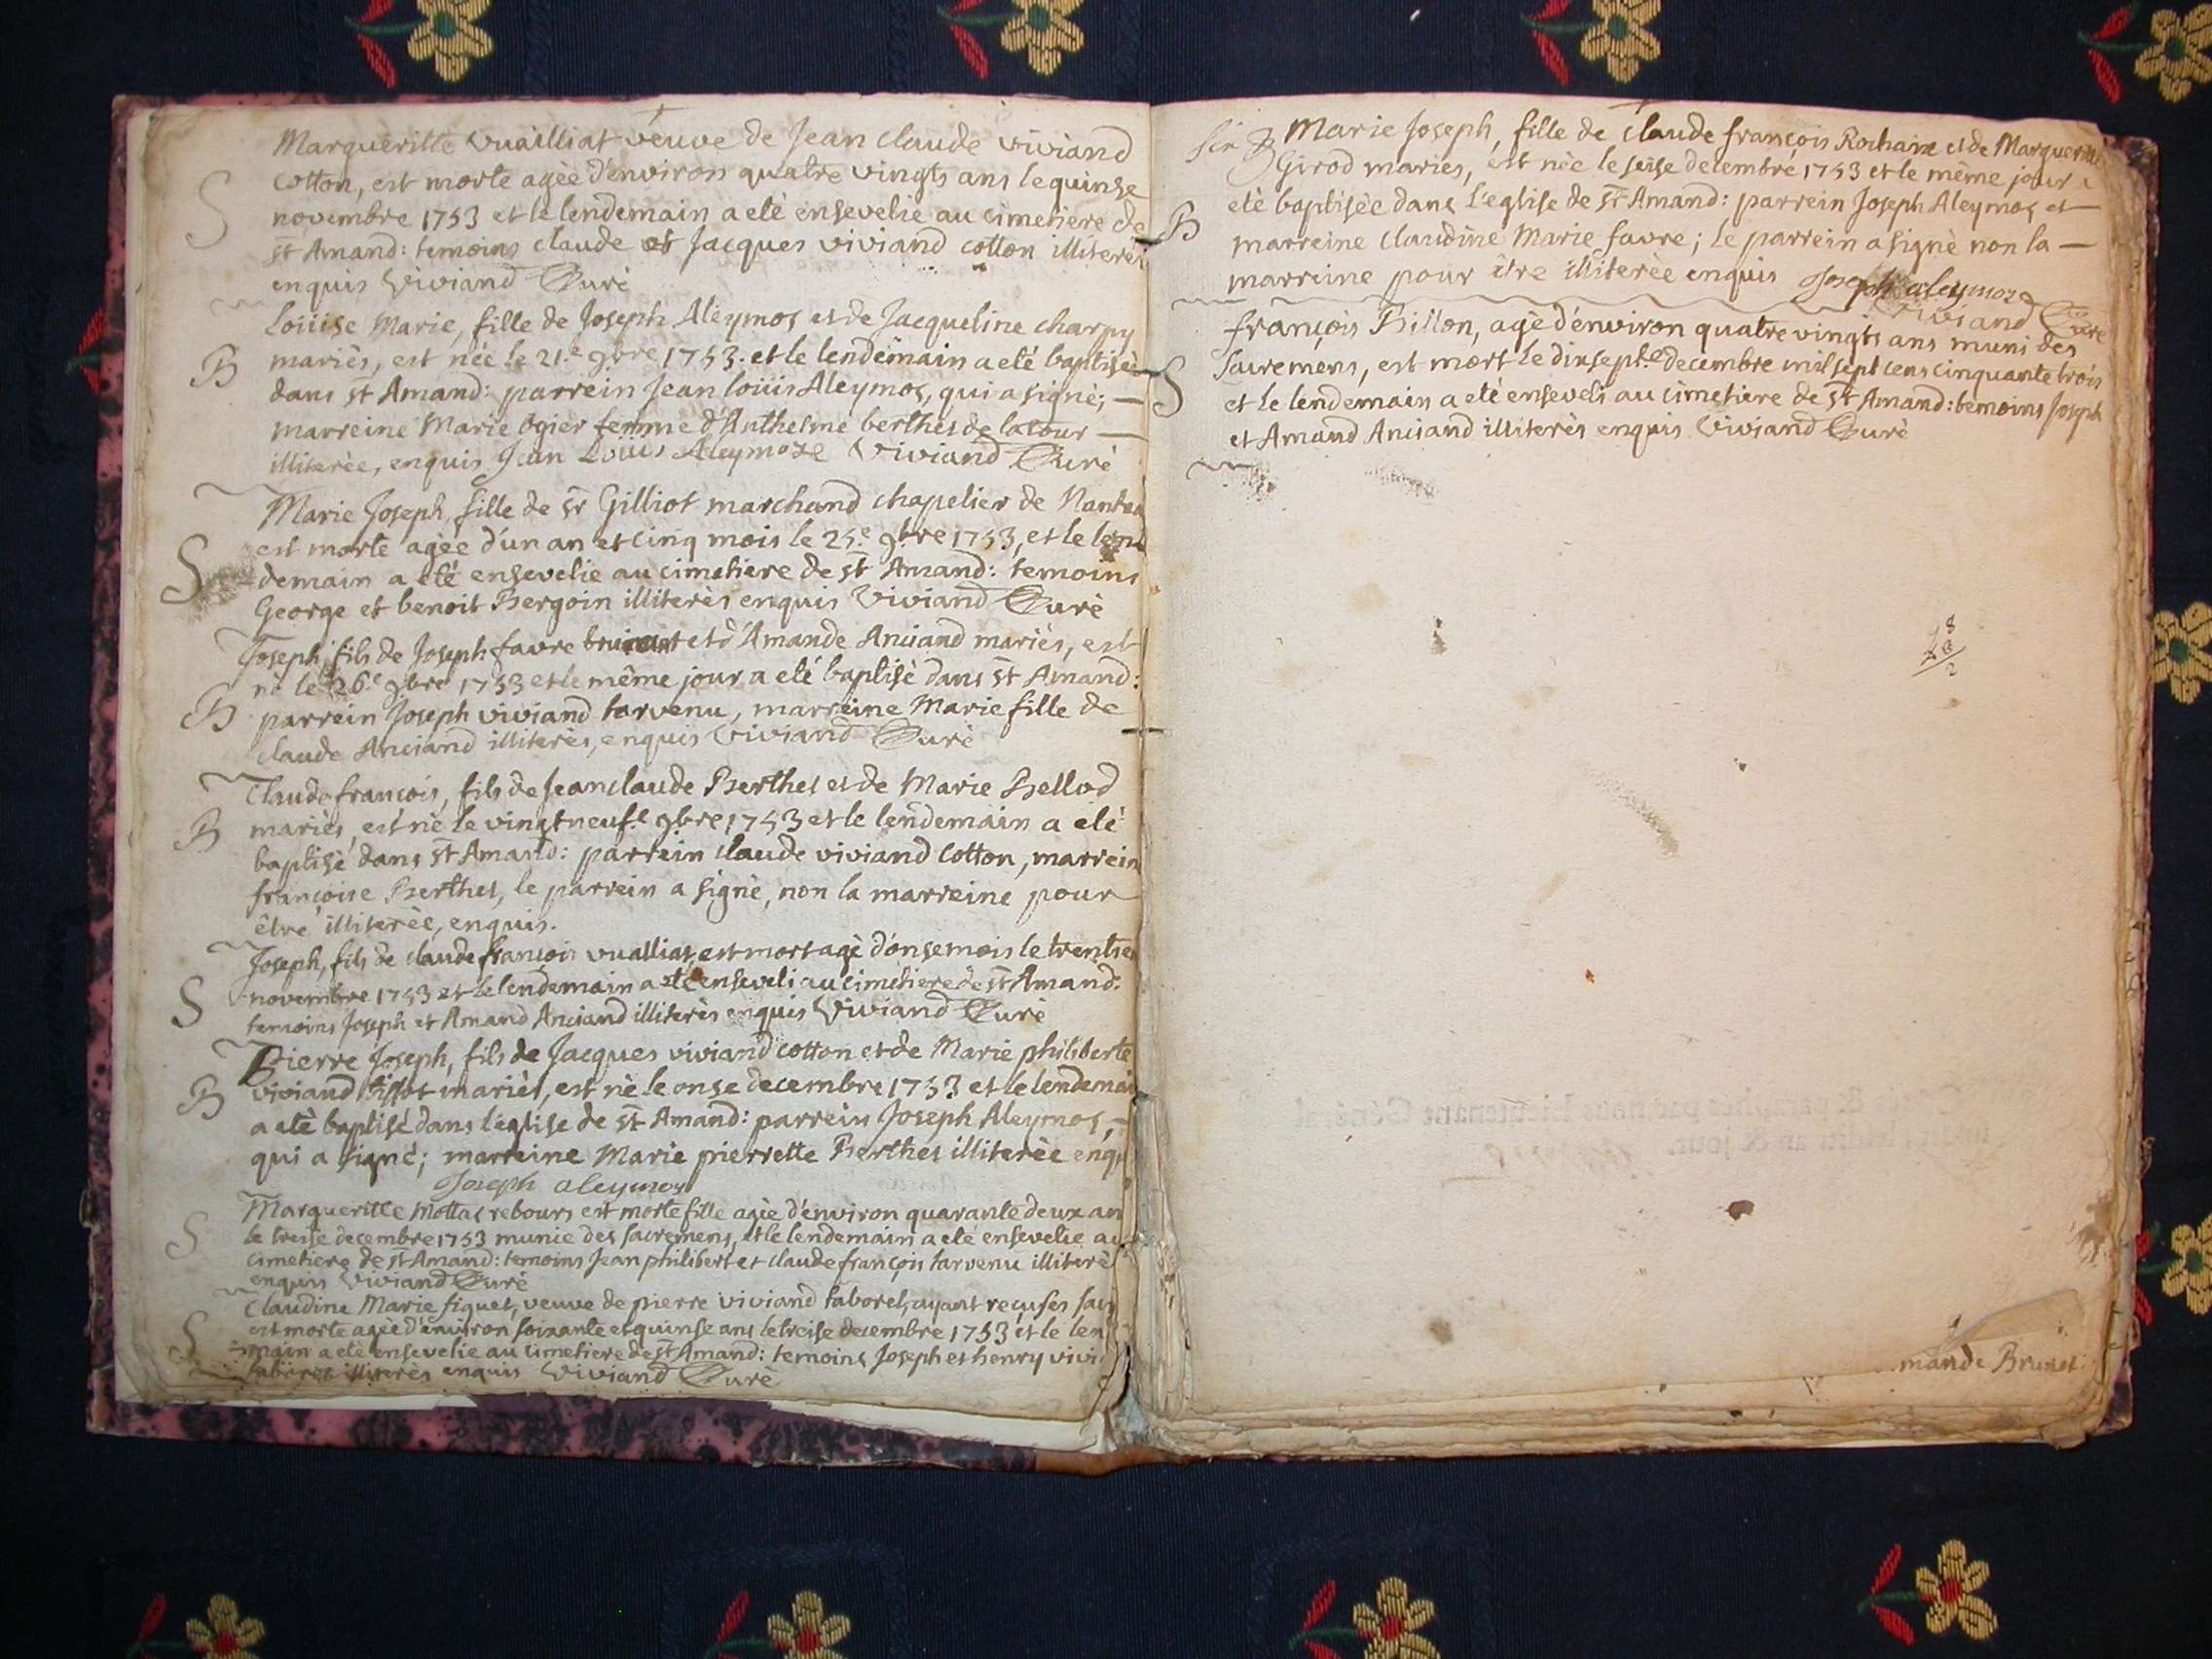 Margueritte Vuailliat veuve de Jean Claude viviand
S
Cotton, est morte agèe d'environ quatre vingts ans le quinse
novembre 1753 et le lendemain a eté ensevelie au cimetiere de
st Amand: temoins claude et Jacques viviand cotton illiterès
enquis Viviand Curè
Loüise Marie, fille de Joseph Aleymos et de Jacqueline charpy
B
mariès, est née le 21.e 9bre 1753. et le lendemain a eté baptisèe
dans st Amand: parrein Jean loüis Aleymos, qui a signè; —
marreine Marie ogier femme d'Anthelme berthet de la cour —
illiterèe, enquis Jean Loüis Aleymoze Viviand Curè
Marie Joseph, fille de sr Gilliot marchand chapelier de Nantua
S
est morte agèe d'un an et cinq mois le 25.e 9bre 1753, et le len
demain a eté ensevelie au cimetiere de st Amand: temoins
George et benoit Bergoin illiterès enquis Viviand Curè
Joseph, fils de Joseph favre et d'Amande Anciand mariès, est
né le 26.e 9bre 1753 et le même jour a eté baptisè dans st Amand:
B
parrein Joseph viviand tarvenu, marreine Marie fille de
claude Anciand illiterès, enquis Viviand Curè
Claude françois, fils de Jean claude Berthet et de Marie Bellod
B
mariès, est nè le vingt neuf.e 9bre 1753 et le lendemain a eté
baptisè dans st Amand: parrein claude viviand Cotton, marrein
françoise Berthet, le parrein a signè, non la marreine pour
être illiterèe, enquis.
Joseph, fils de claude françois vualliat, est mort agè d'onse mois le trentie
S
novembre 1753 et le lendemain a eté enseveli au cimetiere de st Amand:
temoins Joseph et Amand Anciand illiterès enquis Viviand Curè
Pierre Joseph, fils de Jacques viviand cotton et de Marie philiberte
B
viviand mariès, est nè le onse decembre 1753 et le lendemain
a eté baptisé dans l'eglise de st Amand: parrein Joseph Aleymos, —
qui a signé; marreine Marie pierrette Berthet illiterèe enqu
Joseph aleymoz
Margueritte Mottas rebours est morte fille agèe d'environ quarante deux an
S
le treise decembre 1753 munie des sacremens, et le lendemain a eté ensevelie au
cimetiere de st Amand: temoins Jean philibert et claude françois tarvenu illiterè
enquis Viviand Curè
Claudine Marie figuet, veuve de pierre viviand taboret, ayant reçu ses sacr
S
est morte agèe d'environ soixante et quinse ans le treise decembre 1753 et le len
main a eté ensevelie au cimetiere de st Amand: temoins Joseph et henry vivi
taboret illiterès enquis Viviand Curè
B Marie Joseph, fille de claude françois Rochaix et de Marguerite
Girod mariès, est nèe le seise decembre 1753 et le même jour a
B
eté baptisèe dans l'eglise de st Amand: parrein Joseph Aleymos et —
marreine claudine Marie favre; le parrein a signè non la —
marreine pour être illiterèe enquis Joseph aleymoz
Viviand Curè
françois Billon, agè d'environ quatre vingts ans muni des
S
sacremens, est mort le dixsept.e decembre mil sept cens cinquante trois
et le lendemain a eté enseveli au cimetiere de st Amand: temoins Joseph
et Amand Anciand illiterès enquis Viviand Curè
mande Brunet